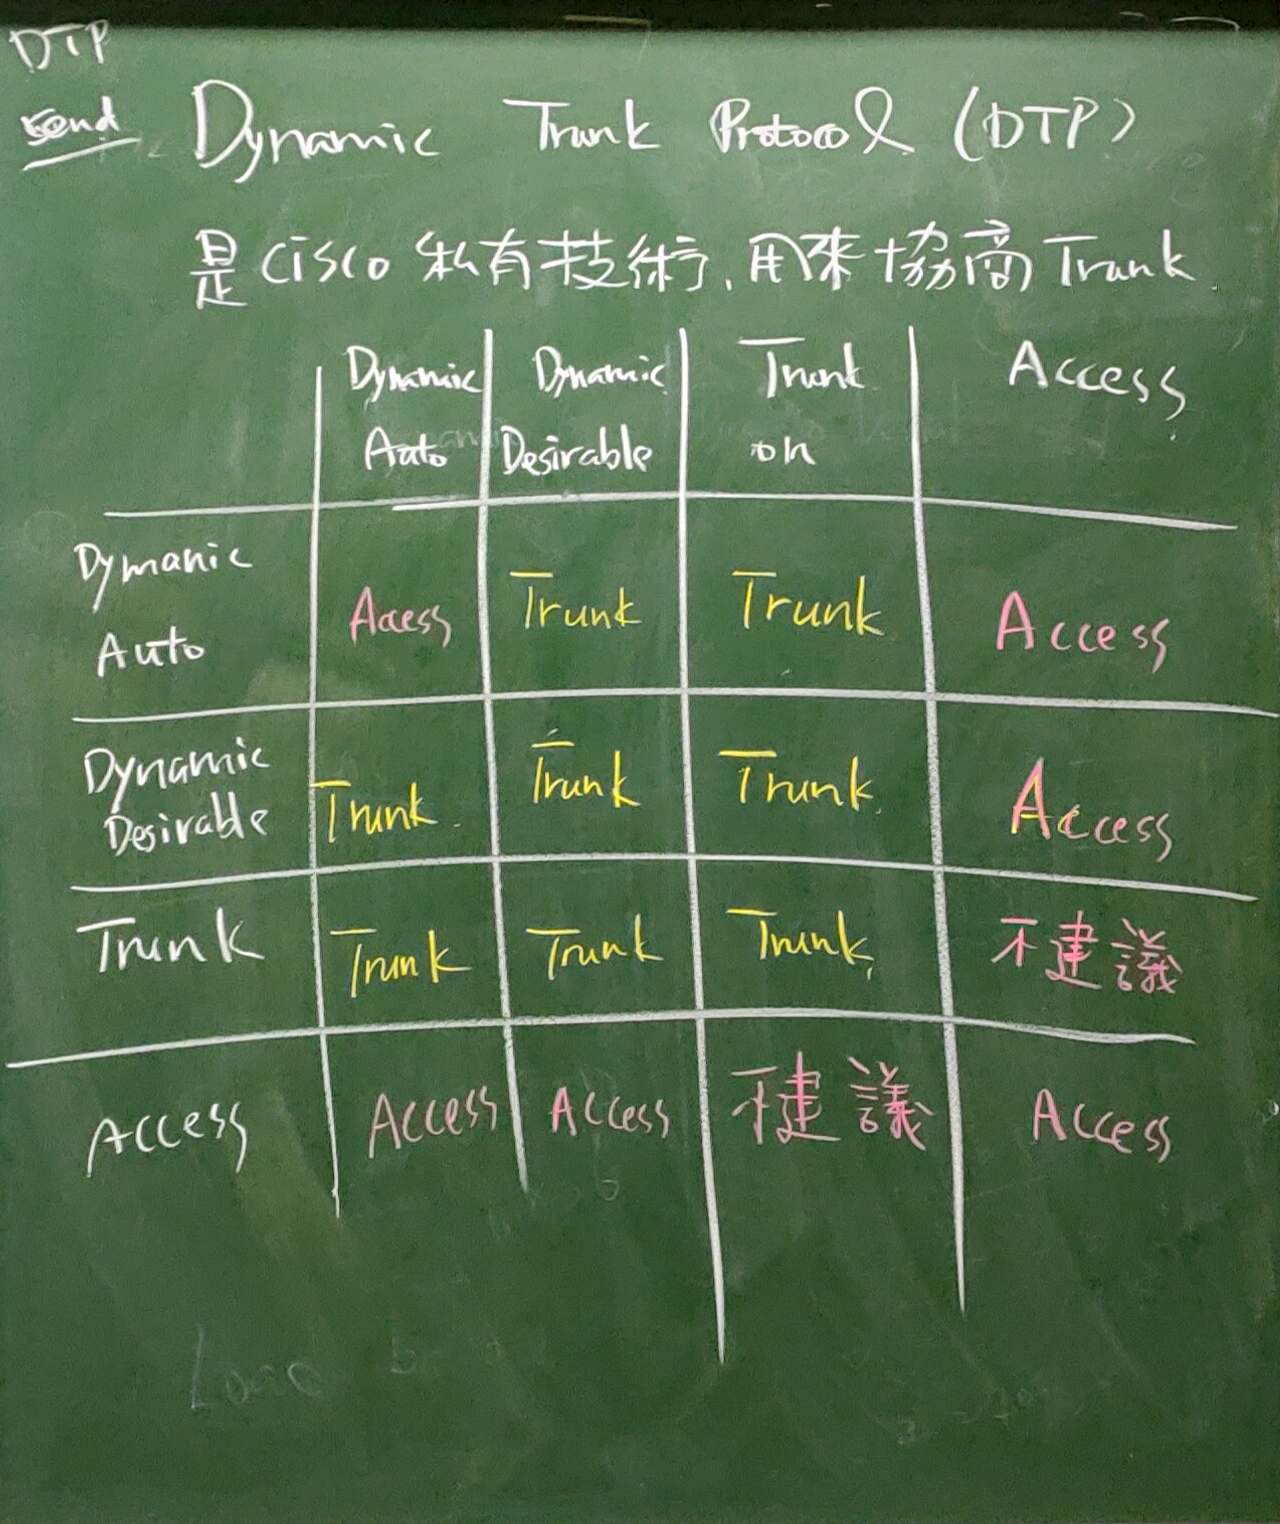 DTP
send
Dynamic Trunk Protocol (DTP)
是 cisco 私有技術, 用來協商 Trunk
Dynamic Auto | Dynamic Desirable | Trunk on | Access
Dymanic Auto | Access | Trunk | Trunk | Access
Dynamic Desirable | Trunk | Trunk | Trunk | Access
Trunk | Trunk | Trunk | Trunk | 不建議
Access | Access | Access | 不建議 | Access